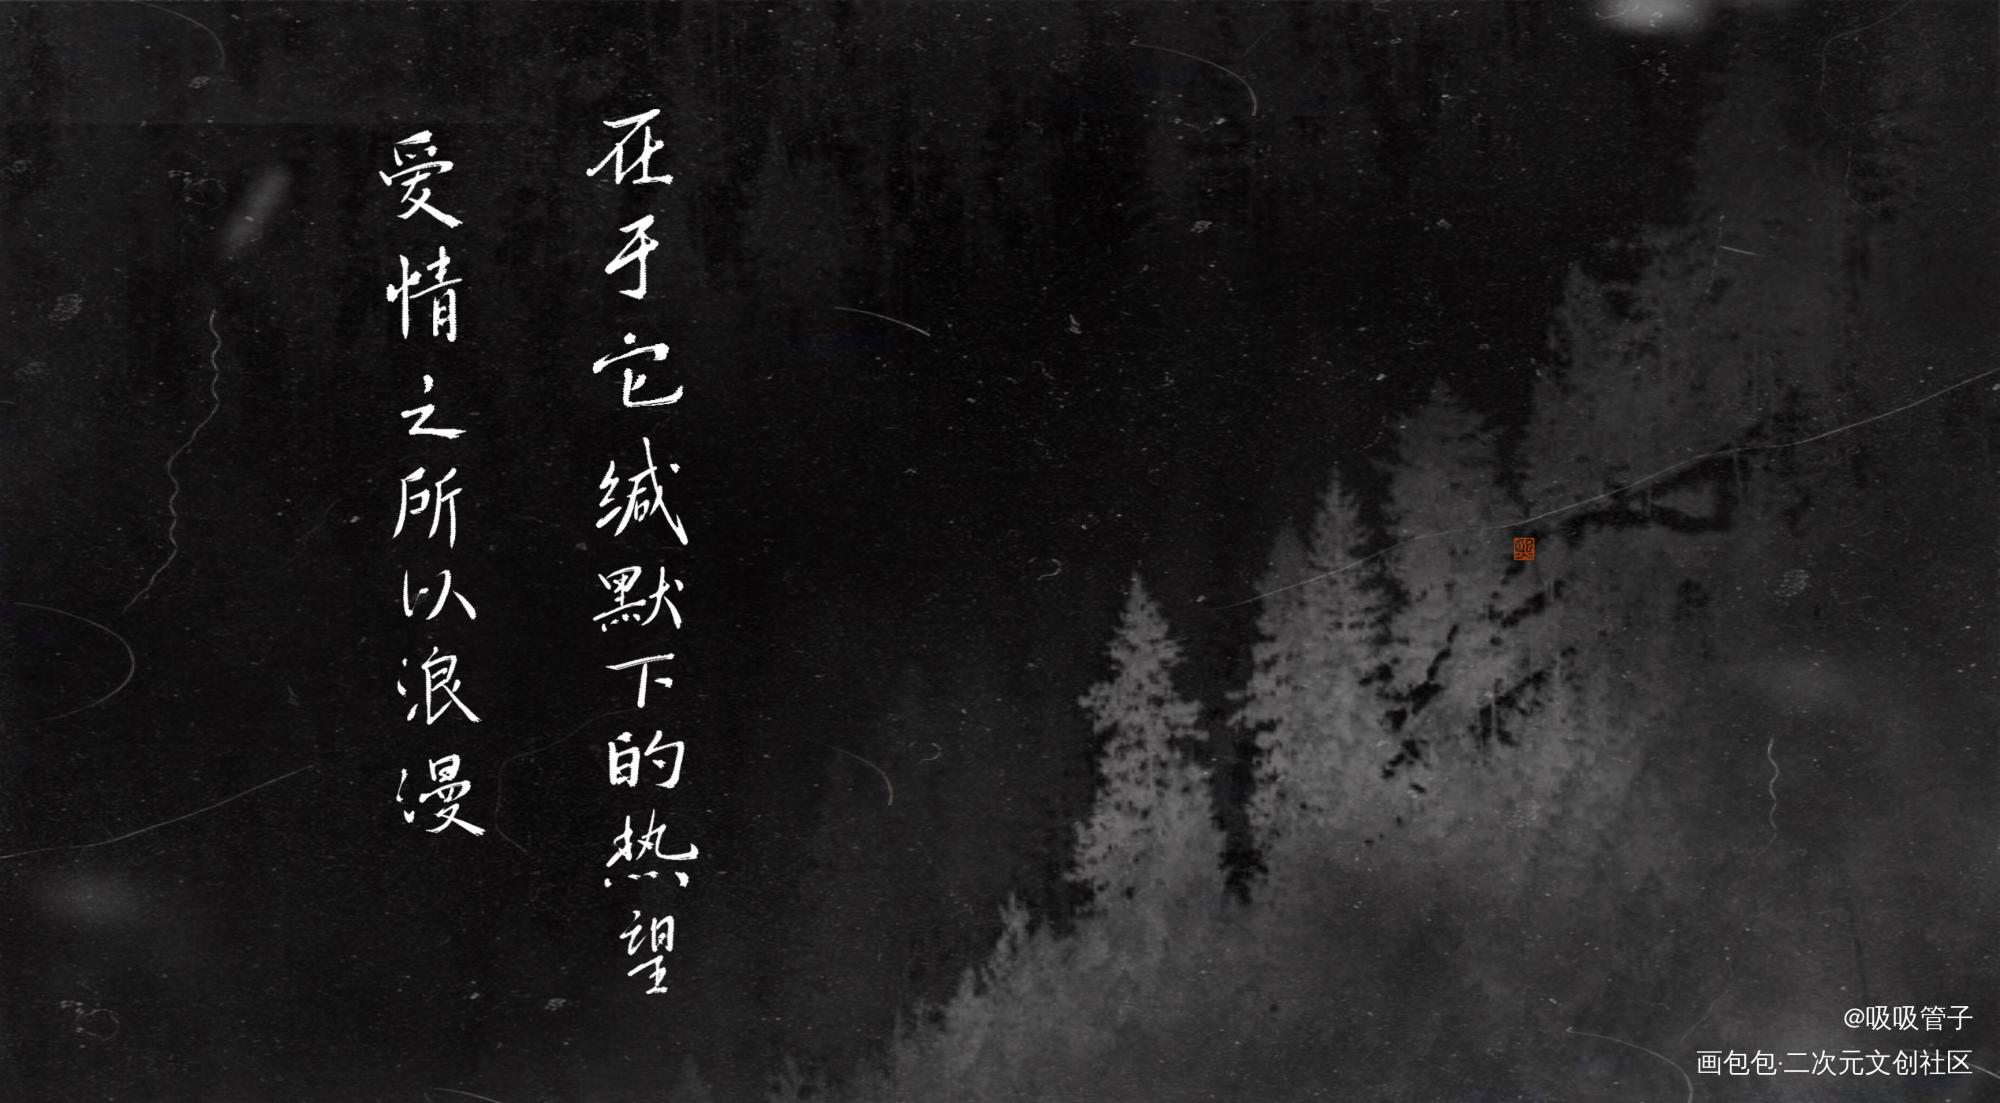 爱情之所以浪漫
在于它缄默下的热望
@吸吸管子
画包包·二次元文创社区